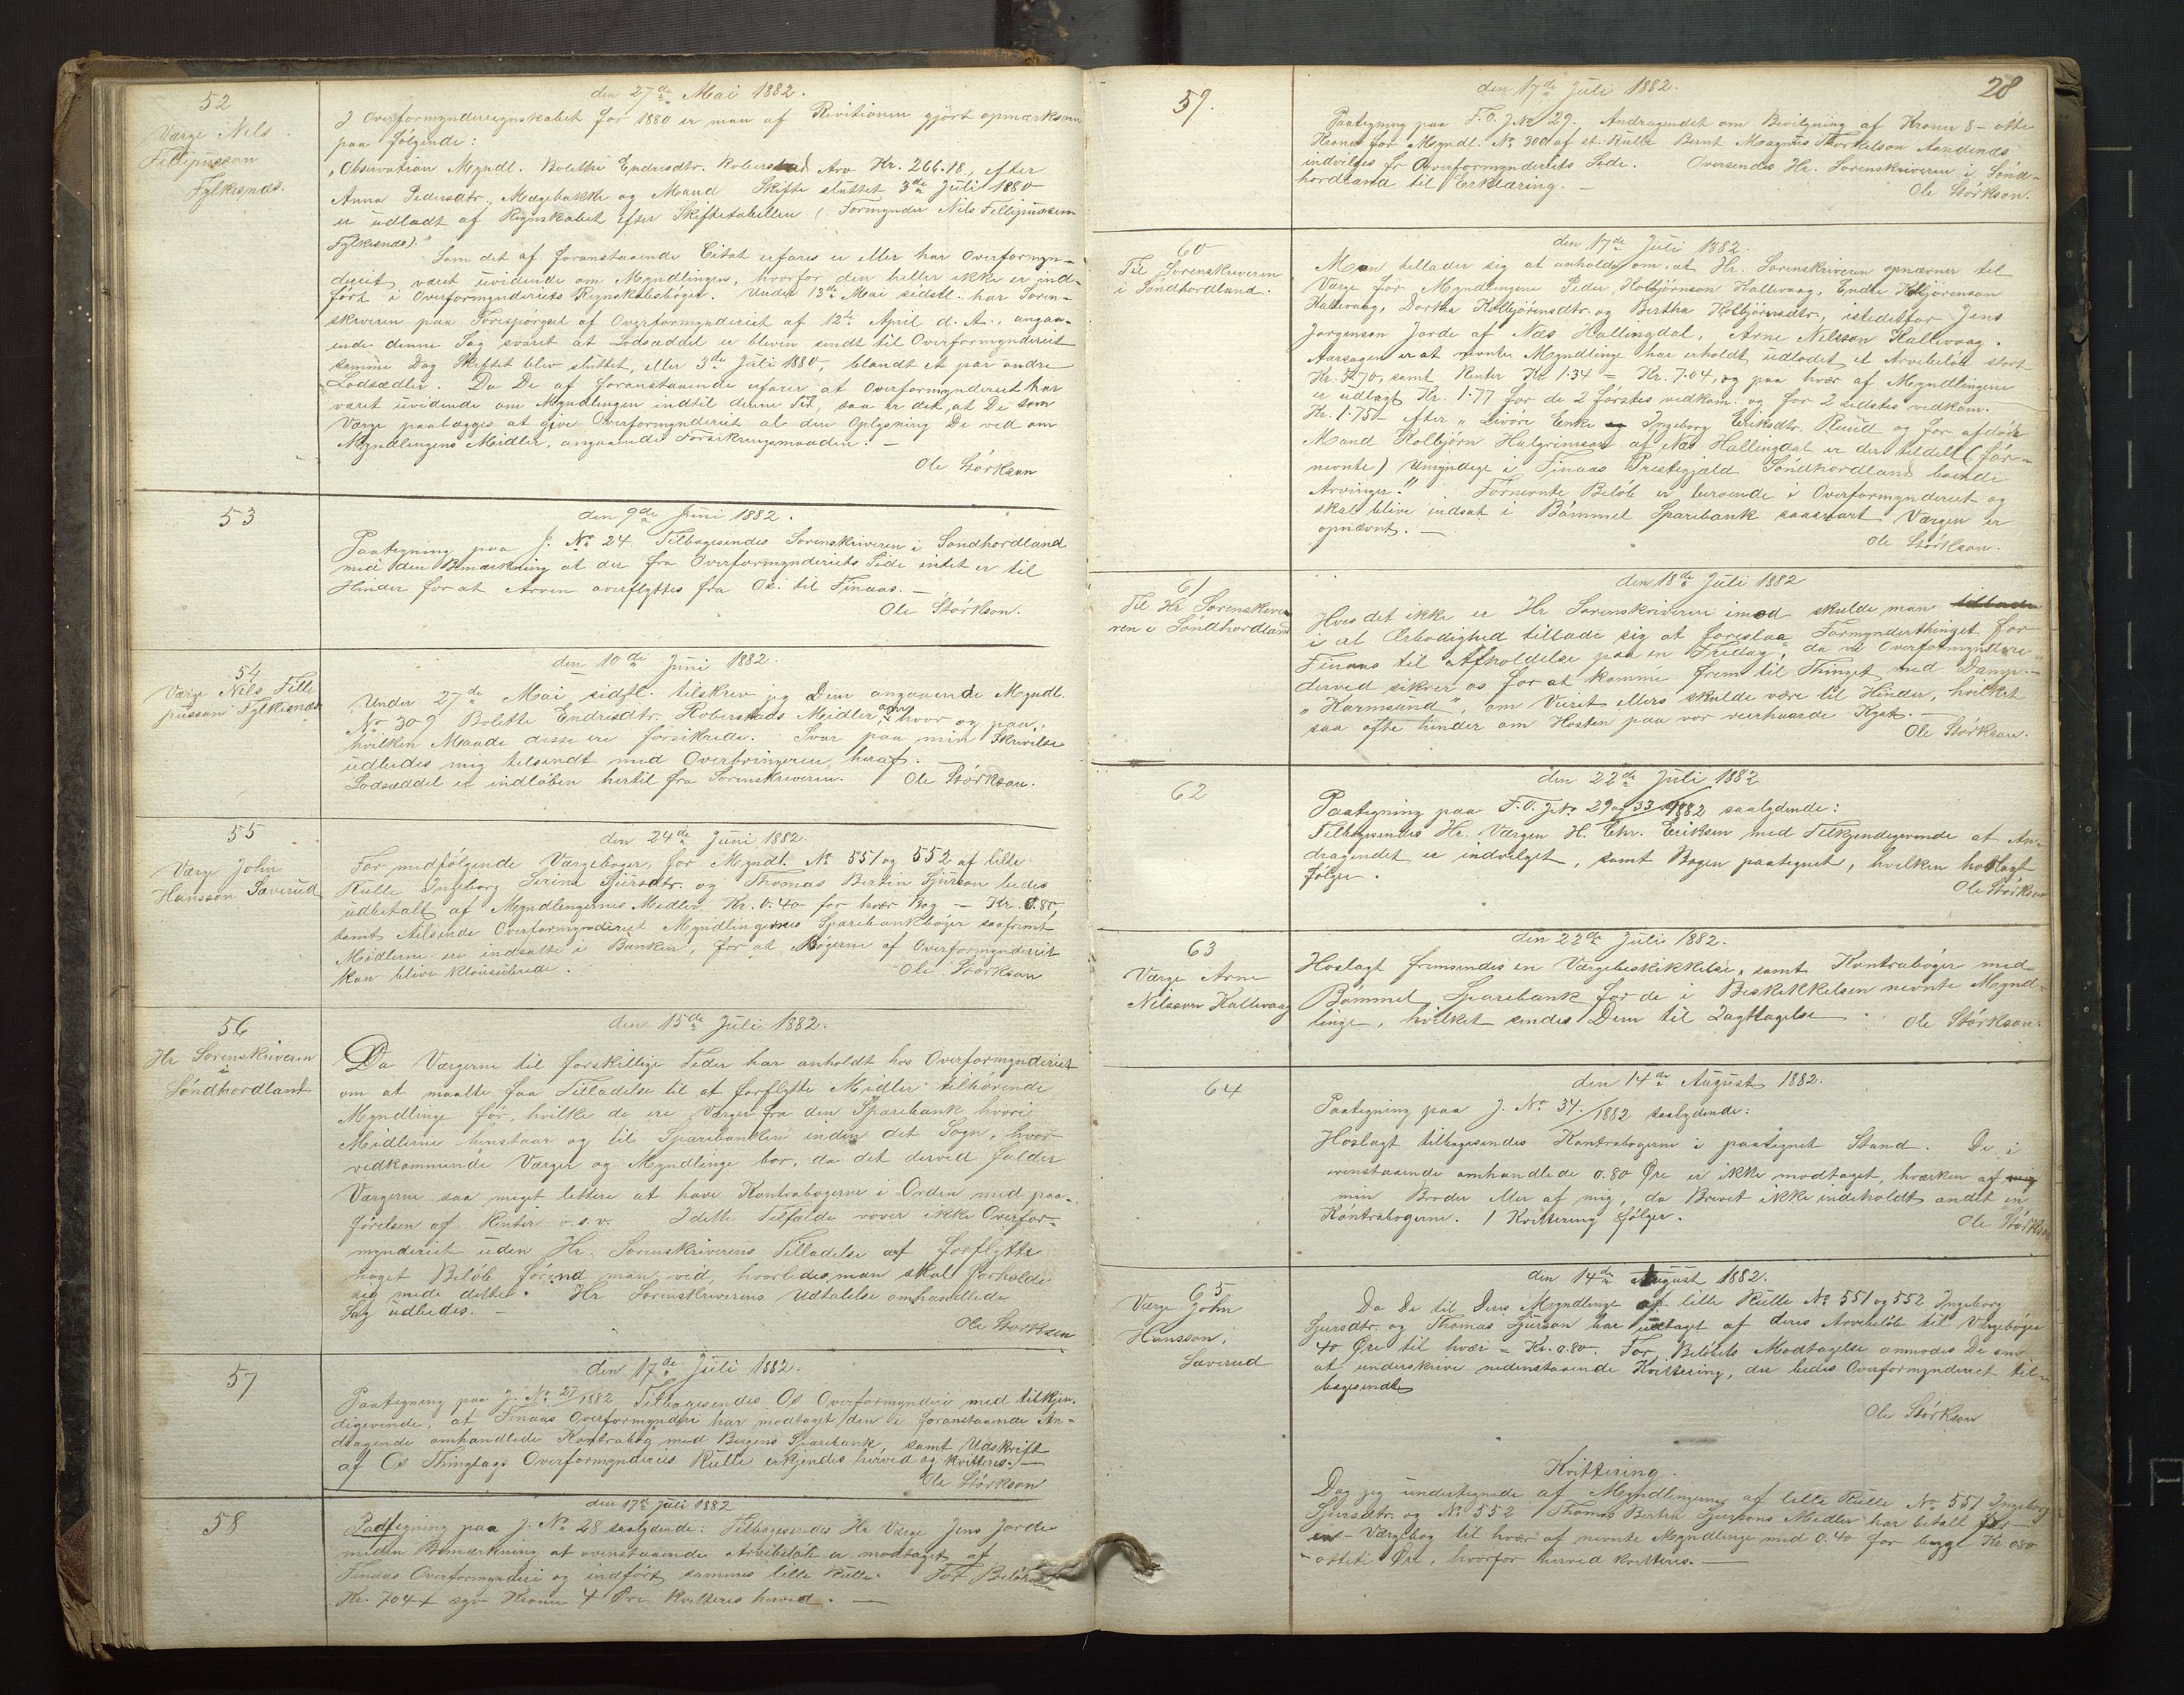 52
Værge Nils
Fillipusson
Fylkesnæs.
den 27de Mai 1882.
I Overformynderregnskabet for 1880 er man af Revitionen gjört opmærksom
paa følgende:
"Observation Myndl. Bolethe Endresdtr. Roberstad Arv Kr. 266.18, efter
Anna Pedersdtr. Mægebakke og Mand Skifte sluttet 3de Juli 1880
er udladt af Regnskabet efter Skiftetabellen (Formynder Nils Fillipussen
Fylkesnæs)."
Som det af foranstaaende Citat erfares er eller har Overformyn-
deriet været uvidende om Myndlingen, hvorfor den heller ikke er ind-
ført i Overformynderiets Regnskabsbøger. Under 13de Mai sidstl. har Soren-
skriveren paa Forespørgsel af Overformynderiet af 12te April d. A., angaa-
ende denne Sag svaret at Lodsæddel er bleven sendt til Overformynderiet
samme Dag Skiftet blev sluttet, eller 3de Juli 1880, blandt et par andre
Lodsædler. Da De af foranstaaende erfarer at Overformynderiet har
været uvidende om Myndlingen indtil denne Tid, saa er det, at De som
Værge paalægges at give Overformynderiet al den Oplysning De ved om
Myndlingens Midler, angaaende Forsikringsmaaden. —
Ole Störkson
53
den 9de Juni 1882.
Paategning paa J. No 24 Tilbagesendes Sorenskriveren i Sondhordland
med den Bemærkning at der fra Overformynderiets Side intet er til
Hinder for at Arven overflyttes fra Os. til Finaas. —
Ole Störkson.
54
Værge Nils Filli
pusson Fylkesnæs
den 10de Juni 1882.
Under 27de Mai sidstl. tilskrev jeg Dem angaaende Myndl.
No 309 Bolette Endresdtr. Roberstads Midler om hvor og paa
hvilken Maade disse ere forsikrede. Svar paa min Skrivelse
udbedes mig tilsendt med Overbringeren heraf.
Lodsæddel er indløben hertil fra Sorenskriveren. Ole Störkson.
55
Værge John
Hansson Saverud
den 24de Juni 1882.
For medfølgende Værgebøger, for Myndl. No 551 og 552 af lille
Rulle Ingeborg Serine Sjursdtr. og Thomas Bertin Sjurson bedes
udbetalt af Myndlingernes Midler Kr. 0.40 for hver Bog — Kr. 0.80,
samt tilsende Overformynderiet Myndlingernes Sparebankbøger saafremt
Midlerne ere indsatte i Banken, for at Bøgerne af Overformynderiet
kan blive klausulerede.
Ole Störkson
56
Hr Sorenskriveren
i
Söndhordland
den 15de Juli 1882.
Da Værgerne til forskillige Tider har anholdt hos Overformynderiet
om at maatte faa Tilladelse til at forflytte Midler tilhørende
Myndlinge før, hvilke de ere Værger fra den Sparebank hvori
Midlerne henstaar og til Sparebanken inden det Sogn, hvor
vedkommende Værger og Myndlinge bor, da det derved falder
Værgerne saa meget lettere at have Kontrabogerne i Orden med paa-
førelsen af Renter o.s.v. I dette Tilfælde vover ikke Overfor-
mynderiet uden Hr. Sorenskriverens Tilladelse at forflytte
noget Beløb førend man ved, hvorledes man skal forholde
sig med dette. Hr Sorenskriverens Udtalelse omhandlede
Sag udbedes. —
Ole Storkson
57
den 17de Juli 1882.
Paategning paa J. No 27/1882 Tilbagesendes Os Overformynderi med tilkjen-
degivende, at Finaas Overformynderi har modtaget den i foranstaaende An-
dragende omhandlede Kontrabog med Bergens Sparebank, samt Udskrift
af Os Thinglags Overformynderies Rulle erkjendes herved og kvitteres. —
Ole Störkson
58
den 17de Juli 1882
Paategning paa J. No 28 saalydende: Tilbagesendes Hr Værge Jens Jorde
meden Bemærkning at ovenstaaende Arvebeløb er modtaget af
Finaas Overformynderi og indført sammes lille Rulle. For Beløbet
Kr. 7.04 syv Kroner 4 Øre kvitteres herved. —
28
59.
den 17de Juli 1882.
Paategning paa F. O. J. No 29. Andragendet om Bevilgning af Kroner 8 - otte
Kroner for Myndl. No 300 af st. Rulle Bernt Magnus Thorkelson Aandenæs
indvilges fr Overformynderiets Side. Oversendes Hr. Sorenskriveren i Sönd-
hordland til Erklæring. —
Ole Störkson.
60
Til Sorenskriveren
i Söndhordland.
den 17de Juli 1882.
Man tillader sig at anholde om, at Hr. Sorenskriveren opnævner til
Værge for Myndlingene Peder Kolbjörnson Kallevaag, Endre Kolbjörenson
Kallevaag, Dorthea Kolbjörensdtr. og Bertha Kolbjörensdtr., istedetfor Jens
Jorgenson Jorde af Næs Hallingdal, Arne Nilsson Kallevaag.
Aarsagen er at nævnte Myndlinge har erholdt udlodet et Arvebeløb stort
Kr. 5.70, samt Renter Kr 1.34 = Kr. 7.04, og paa hver af Myndlingene
er udlagt Kr. 1.77 for de 2 förstes vedkom. og for 2 sidstes vedkom.
Kr. 1.75 — efter "Livöre Enke Ingeborg Eriksdtr. Ruud og for afdöde
Mand Kolbjörn Halgrimson af Næs Hallingdal er der tildelt (för-
nevnte) Umyndige i Finaas Prestegjæld Söndhordland boende
Arvinger." Förnevnte Beløb er beroende i Overformynderiet og
skal blive indsat i Bömmel Sparebank saasnart Værgen er
opnævnt. —
Ole Störkson.
61
Til Hr Sorenskrive
ren i Söndhordland
den 18de Juli 1882
Hvis det ikke er Hr Sorenskriveren imod skulde man
i al Ærbødighed tillade sig at foreslaa Formynderthinget for
Finaas til Afholdelse paa en "Fredag", da vi Overformyndere
derved sikrer os for at komme frem til Thinget med Damp-
"Karmsund", om Veiret ellers skulde være til Hinder, hvilket
saa ofte hænder om Høsten paa vor veirhaarde Kyst. —
Ole Störkson.
62
den 22de Juli 1882
Paategning paa F. O. J. No 29 og 33/1882 saalydende:
Tilbagesendes Hr. Værgen H. Chr. Eriksen med Tilkjendegivende at An-
dragendet er indvilget, samt Bogen paategnet, hvilken hoslagt
følger.
Ole Störkson
63
Værge Arne
Nilsson Kallevaag
den 22de Juli 1882.
Hoslagt fremsendes en Værgebeskikkelse, samt Kontrabøger med
Bömmel Sparebank for de i Beskikkelsen nevnte Mynd-
linge, hvilket sendes Dem til Iagttagelse
Ole Störkson.
64
den 14de August 1882.
Paategning paa J. No 34./1882 saalydende:
Hoslagt tilbagesendes Kontrabogerne i paategnet Stand. De i
ovenstaaende omhandlede 0.80 Øre er ikke modtaget, hværken af
min Broder eller af mig, da Brevet ikke indeholdt andet en
Kontrabogerne. 1 Kvittering følger.
Ole Störkson
65
Værge John
Hansson,
Saverud
den 14de August 1882.
Da De til Deres Myndlinge af lille Rulle No 551 og 552 Ingeborg
Sjursdtr. og Thomas Sjurson har udlagt af deres Arvebeløb til Værgebøger
40 Øre til hver = Kr. 0.80. For Beløbets Modtagelse anmodes De om
at underskrive nedenstaaende Kvittering, der bedes Overformynderiet til-
bagesendt
Ole Störkson
Kvittering.
Dag jeg undertegnede af Myndlingernes af lille Rulle No. 551 Ingeborg
Sjursdtr. og No 552 Thomas Bertin Sjursons Midler har betalt for
en Værgebog til hver af nevnte Myndlinge med 0.40 for begge Kr. 0.80
- otteti Øre, hvorfor herved kvitteres. —